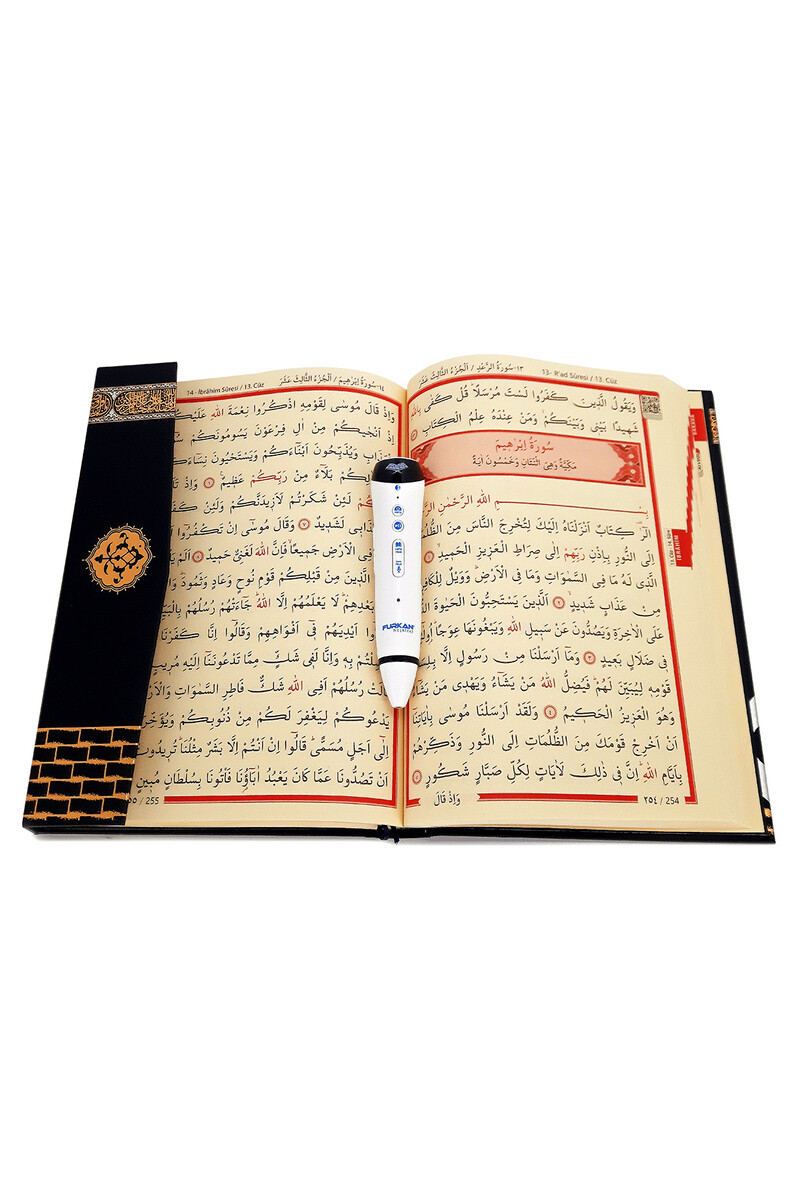 ١٣-سُورَةُ الرَّعْدِ / اَلْجُزْءُ الثَّالِثَ عَشَرَ
13- R'ad Sûresi / 13. Cüz
وَيَقُولُ الَّذٖينَ كَفَرُوا لَسْتَ مُرْسَلًاؕ قُلْ كَفٰى بِاللّٰهِ
شَهٖيدًا بَيْنٖى وَبَيْنَكُمْۙ وَمَنْ عِنْدَهُ عِلْمُ الْكِتَابِ
سُورَةُ اِبْرٰهٖيمَ
مَكِّيَّةٌ وَهِىَ اثْنَتَانِ وَخَمْسُونَ اٰيَةً
بِسْــــمِ اللّٰهِ الرَّحْمٰنِ
الٓرٰ ࣞ كِتَابٌ اَنْزَلْنَاهُ اِلَيْكَ لِتُخْرِجَ النَّاسَ مِنَ الظُّلُمَاتِ
اِلَى النُّورِ بِاِذْنِ رَبِّهِمْ اِلٰى صِرَاطِ الْعَزٖيزِ الْحَمٖيدِۙ ١
اَللّٰهِ الَّذٖى لَهُ مَا فِى السَّمٰوَاتِ وَمَا فِى الْاَرْضِؕ وَوَيْلٌ لِلْكَافِرٖينَ
مِنْ عَذَابٍ شَدٖيدٍۙ ٢ اَلَّذٖينَ يَسْتَحِبُّونَ الْحَيٰوةَ
عَلَى الْاٰخِرَةِ وَيَصُدُّونَ عَنْ سَبٖيلِ اللّٰهِ وَيَبْغُونَهَا عِوَجًاؕ
فٖى ضَلَالٍ بَعٖيدٍ ٣ وَمَا اَرْسَلْنَا مِنْ رَسُولٍ اِلَّا بِلِسَانِ
قَوْمِهٖ لِيُبَيِّنَ لَهُمْؕ فَيُضِلُّ اللّٰهُ مَنْ يَشَاءُ وَيَهْدٖى مَنْ يَشَاءُؕ
وَهُوَ الْعَزٖيزُ الْحَكٖيمُ ٤ وَلَقَدْ اَرْسَلْنَا مُوسٰى بِاٰيَاتِنَا
اَنْ اَخْرِجْ قَوْمَكَ مِنَ الظُّلُمَاتِ اِلَى النُّورِ وَذَكِّرْهُمْ
بِاَيَّامِ اللّٰهِؕ اِنَّ فٖى ذٰلِكَ لَاٰيَاتٍ لِكُلِّ صَبَّارٍ شَكُورٍ
وَاِذْ قَالَ
٢٥٤ / 254
İBRAHİM
١٤-سُورَةُ اِبْرٰهٖيمَ / اَلْجُزْءُ الثَّالِثَ عَشَرَ
14 - İbrâhîm Sûresi / 13. Cüz
وَاِذْ قَالَ مُوسٰى لِقَوْمِهِ اذْكُرُوا نِعْمَةَ اللّٰهِ عَلَيْكُمْ
اِذْ اَنْجٰيكُمْ مِنْ اٰلِ فِرْعَوْنَ يَسُومُونَكُمْ
الْعَذَابِ وَيُذَبِّحُونَ اَبْنَاءَكُمْ وَيَسْتَحْيُونَ نِسَاءَكُمْ
بَلَاءٌ مِنْ رَبِّكُمْ عَظٖيمٌ وَاِذْ
لَئِنْ شَكَرْتُمْ لَاَزٖيدَنَّكُمْ وَلَئِنْ
لَشَدٖيدٌ ٧ وَقَالَ مُوسٰى اِنْ تَكْفُرُوا
فِى الْاَرْضِ جَمٖيعًاۙ فَاِنَّ اللّٰهَ لَغَنِىٌّ حَمٖيدٌ ٨ اَلَمْ
الَّذٖينَ مِنْ قَبْلِكُمْ قَوْمِ نُوحٍ وَعَادٍ وَثَمُودَ
بَعْدِهِمْؕ لَا يَعْلَمُهُمْ اِلَّا اللّٰهُؕ جَاءَتْهُمْ رُسُلُهُمْ
اَيْدِيَهُمْ فٖى اَفْوَاهِهِمْ وَقَالُوا اِنَّا كَفَرْنَا
بِهٖ وَاِنَّا لَفٖى شَكٍّ مِمَّا تَدْعُونَنَا اِلَيْهِ مُرٖيبٍ
قَالَتْ رُسُلُهُمْ اَفِى اللّٰهِ شَكٌّ فَاطِرِ السَّمٰوَاتِ
يَدْعُوكُمْ لِيَغْفِرَ لَكُمْ مِنْ ذُنُوبِكُمْ وَيُؤَخِّرَكُمْ
اِلٰى اَجَلٍ مُسَمًّىؕ قَالُوا اِنْ اَنْتُمْ اِلَّا بَشَرٌ مِثْلُنَاؕ تُرٖيدُونَ
اَنْ تَصُدُّونَا عَمَّا كَانَ يَعْبُدُ اٰبَاؤُنَا فَاْتُونَا بِسُلْطَانٍ مُبٖينٍ
255
FURKAN
NEŞRİYAT